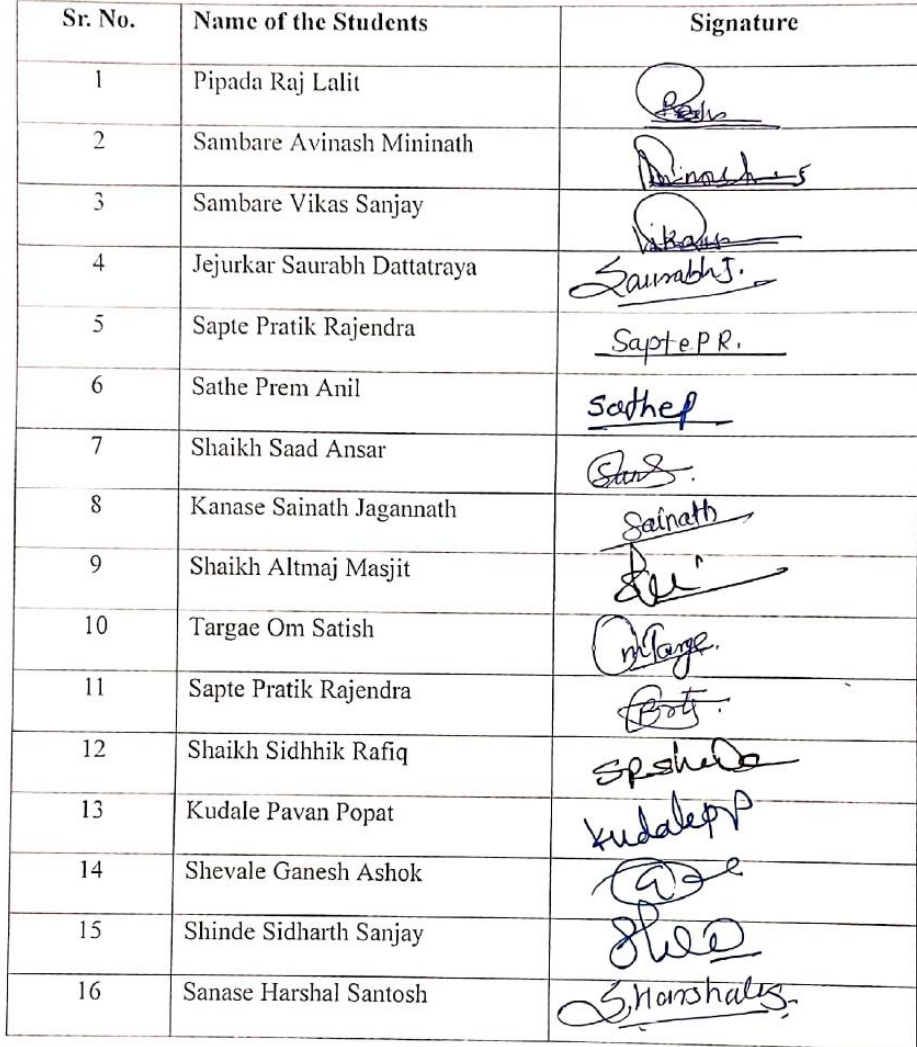 Sr. No. Name of the Students Signature
1 Pipada Raj Lalit
2 Sambare Avinash Mininath
3 Sambare Vikas Sanjay Vikas
4 Jejurkar Saurabh Dattatraya Saurabh J.
5 Sapte Pratik Rajendra Sapte P R.
6 Sathe Prem Anil Sathe P
7 Shaikh Saad Ansar
8 Kanase Sainath Jagannath Sainath
9 Shaikh Altmaj Masjit
10 Targae Om Satish Om Targe.
11 Sapte Pratik Rajendra
12 Shaikh Sidhhik Rafiq
13 Kudale Pavan Popat Kudale P P
14 Shevale Ganesh Ashok
15 Shinde Sidharth Sanjay
16 Sanase Harshal Santosh